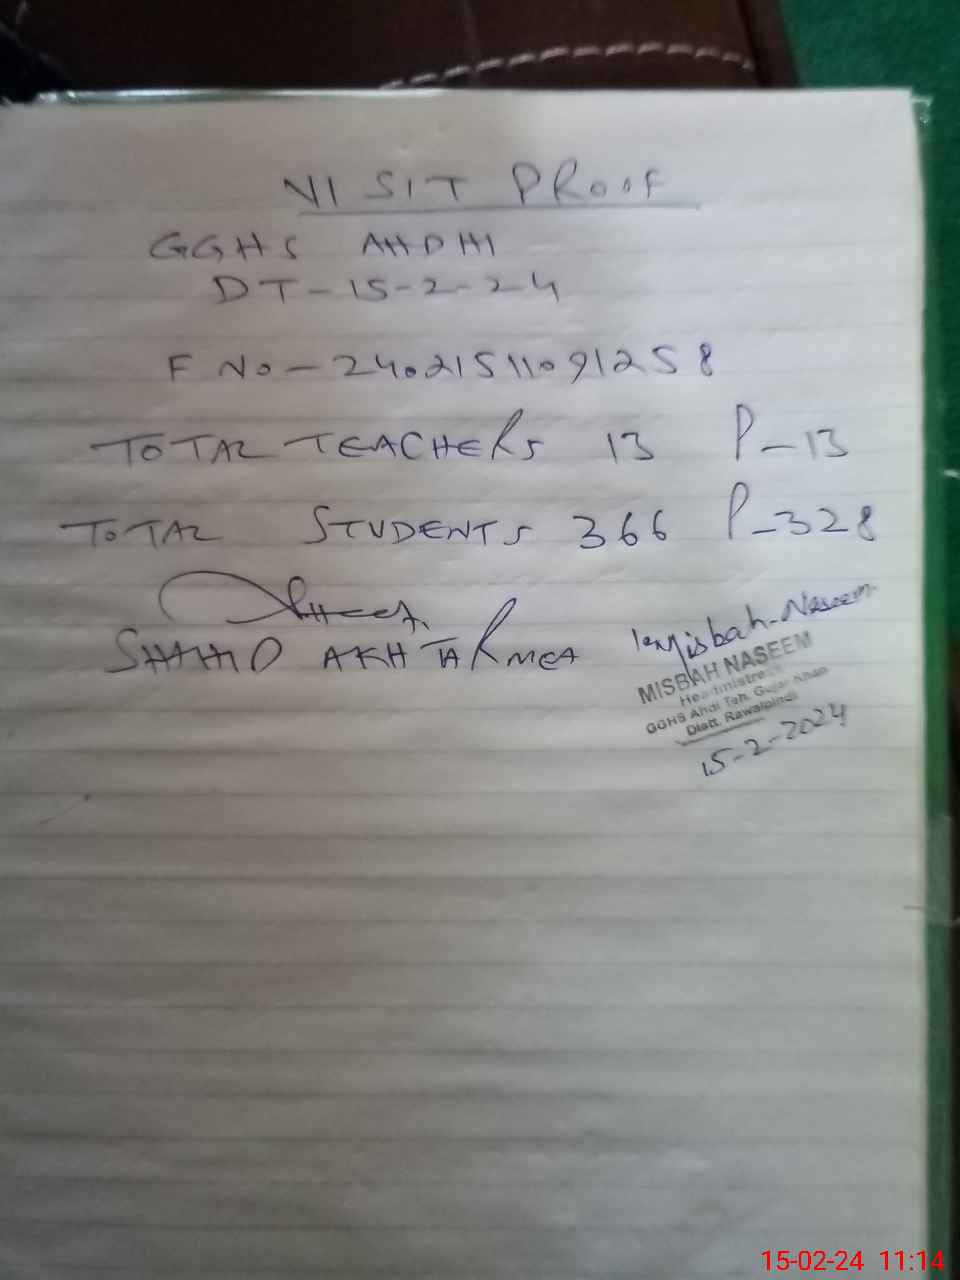 VISIT PROOF
GGHS AHDHI
DT-15-2-24
F NO-24021511091258
TOTAL TEACHERS 13 P-13
TOTAL STUDENTS 366 P-328
SHAHID AKHTAR MEA
Misbah Naseem
MISBAH NASEEM
Headmistress
GGHS Ahdi Teh. Gujar Khan
Distt. Rawalpindi
15-2-2024
15-02-24 11:14